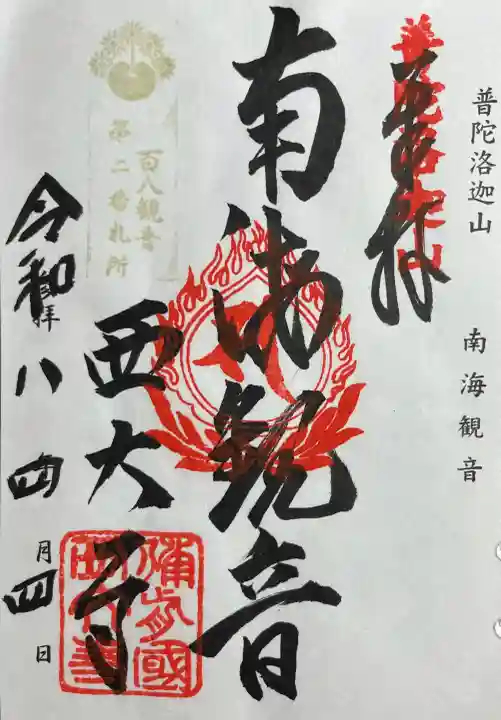 普陀洛迦山
南海観音
奉拝
南海観音
西大寺
百八観音
第二番札所
令和
拝
八
四月
四日
備前國